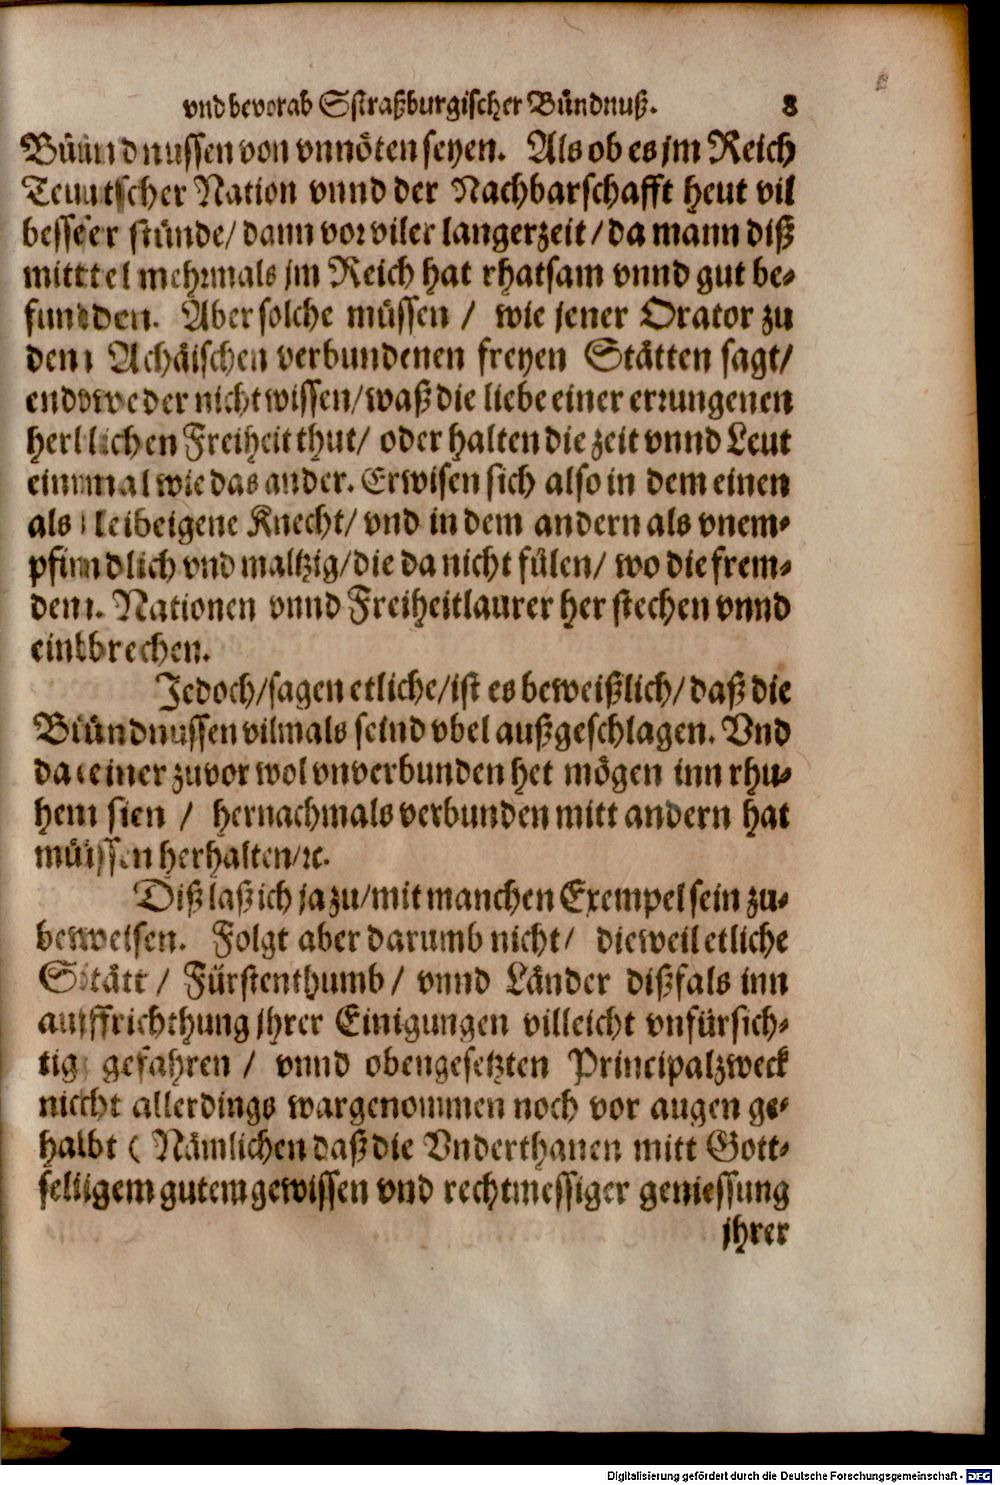 vnd bevorab Straßburgischer Bündnuß. 8
Bündnussen von vnnöten seyen. Als ob es jm Reich
Teutscher Nation vnnd der Nachbarschafft heut vil
besser stünde/ dann vor viler langer zeit/ da mann diß
mittel mehrmals jm Reich hat rhatsam vnnd gut be-
funden. Aber solche müssen / wie jener Orator zu
den Achäischen verbundenen freyen Stätten sagt/
endweder nicht wissen/ waß die liebe einer errungenen
herllichen Freiheit thut/ oder halten die zeit vnnd Leut
einmal wie das ander. Erwisen sich also in dem einen
als leibeigene Knecht/ vnd in dem andern als vnem-
pfindlich vnd maltzig/ die da nicht fülen/ wo die frem-
den Nationen vnnd Freiheitlaurer her stechen vnnd
einbrechen.
Jedoch/ sagen etliche/ ist es beweißlich/ daß die
Bündnussen vilmals seind vbel außgeschlagen. Vnd
da einer zuvor wol vnverbunden het mögen inn rhu-
hem sien / hernachmals verbunden mitt andern hat
müssen herhalten/ ꝛc.
Diß laß ich ja zu/ mit manchen Exempel sein zu-
beweisen. Folgt aber darumb nicht/ dieweil etliche
Stätt / Fürstenthumb / vnnd Länder dißfals inn
auffrichthung jhrer Einigungen villeicht vnfürsich-
tig gefahren / vnnd obengesetzten Principalzweck
nicht allerdings wargenommen noch vor augen ge-
habt ( Nämlichen daß die Vnderthanen mitt Gott-
seligem gutem gewissen vnd rechtmessiger geniessung
jhrer
Digitalisierung gefördert durch die Deutsche Forschungsgemeinschaft - DFG